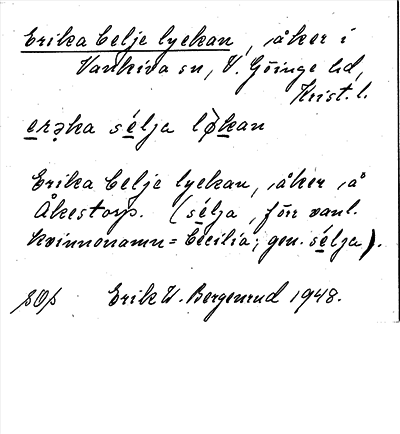 Erika Celje lyckan, åker i
Vankiva sn, V. Göinge hd,
Krist. l.
erəka sélja lø̀kan
Erika Celje lyckan, åker å
Åkestorp. (sélja, förr vanl.
kvinnonamn = Cecilia; gen. sélja).
Erik W. Bergenrud 1948.